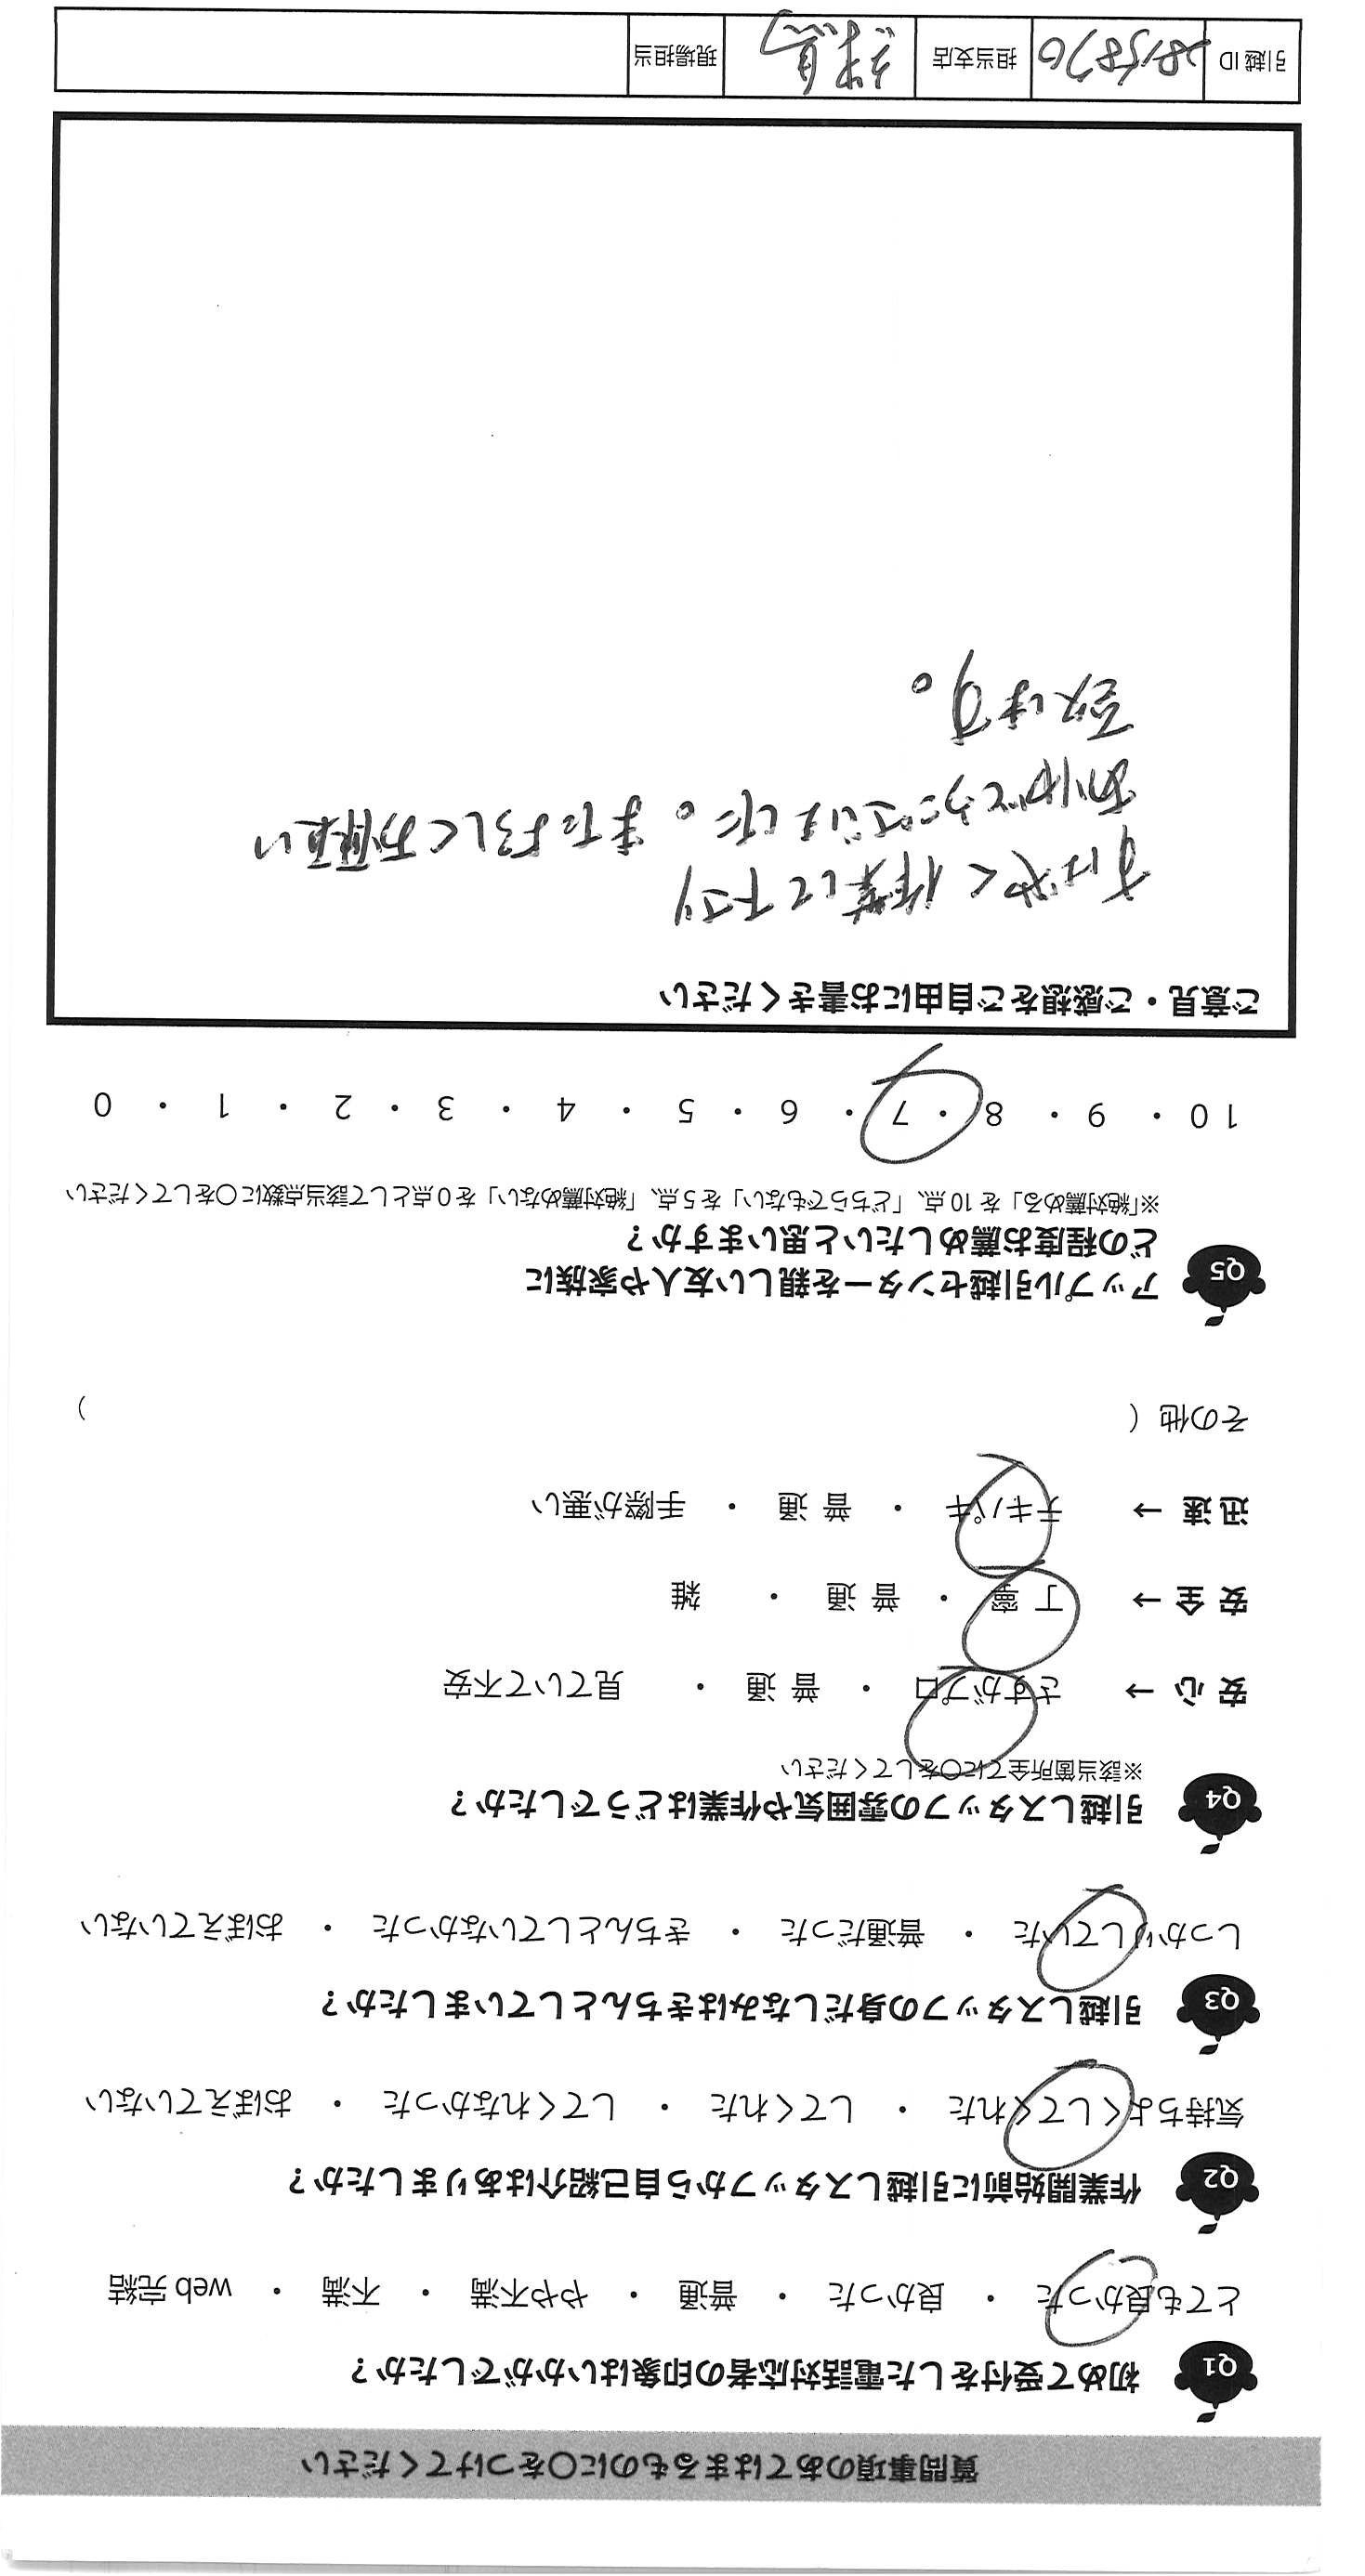 質問事項のあてはまるものに〇をつけてください
Q1 初めて受付をした電話対応者の印象はいかがでしたか？
とても良かった ・ 良かった ・ 普通 ・ やや不満 ・ 不満 ・ web 完結
Q2 作業開始前に引越しスタッフから自己紹介はありましたか？
気持ちよくしてくれた ・ してくれた ・ してくれなかった ・ おぼえていない
Q3 引越しスタッフの身だしなみはきちんとしていましたか？
しっかりしていた ・ 普通だった ・ きちんとしていなかった ・ おぼえていない
Q4 引越しスタッフの雰囲気や作業はどうでしたか？
※該当箇所全てに〇をしてください
安心 → さすがプロ ・ 普通 ・ 見ていて不安
安全 → 丁寧 ・ 普通 ・ 雑
迅速 → テキパキ ・ 普通 ・ 手際が悪い
その他（ ）
Q5 アップル引越センターを親しい友人や家族に
どの程度お薦めしたいと思いますか？
※「絶対薦める」を10点、「どちらでもない」を5点、「絶対薦めない」を0点として該当点数に〇をしてください
10 ・ 9 ・ 8 ・ 7 ・ 6 ・ 5 ・ 4 ・ 3 ・ 2 ・ 1 ・ 0
ご意見・ご感想をご自由にお書きください
すばやく作業して下さり
ありがとうございました。またよろしくお願い
致します。
引越ID 担当支店 練馬 現場担当